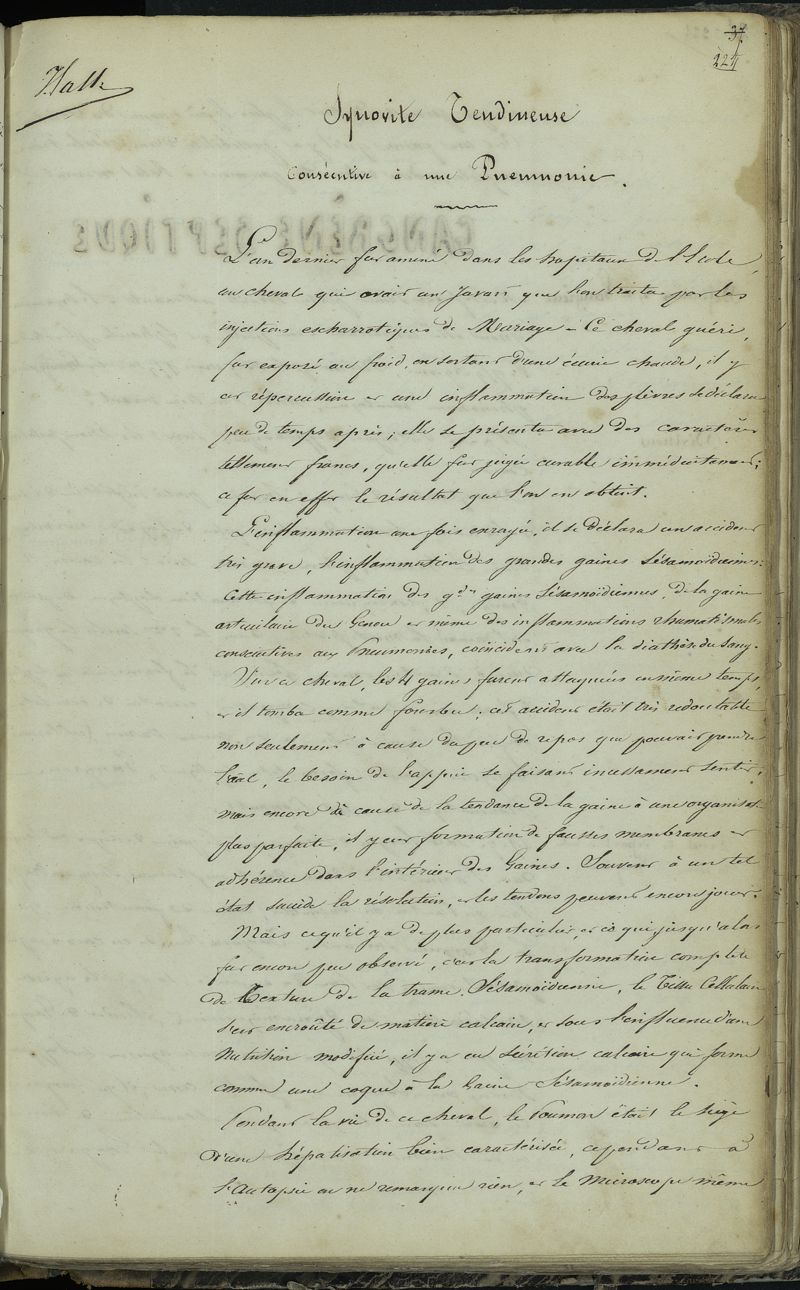 37
224
Synovite Tendineuse
Consécutive à une Pneumonie.
L'an dernier fut amené dans les hopitaux de l'Ecole,
un cheval qui avait un Javart que l'on traita par les
injections escharrotiques de Mariage - Ce cheval guéri,
fut exposé au froid, en sortant d'une écurie chaude, il y
eut répercussion et une inflammation des plèvres se déclara
peu de temps après; elle se présenta avec des caractères
tellement francs, qu'elle fut jugée curable immédiatement;
ce fut en effet le résultat que l'on en obtint.
L'inflammation une fois enrayée, il se déclara un accident
très grave, l'inflammation des grandes gaines Sésamoïdiennes.
Cette inflammation des gdes gaines Sésamoïdiennes, de la gaine
articulaire du Genou et même des inflammations rhumatismales
consécutives aux Pneumonies, coïncident avec la diathèse du sang.
Sur ce cheval, les 4 gaines furent attaquées en même temps,
et il tomba comme fourbu; cet accident était très redoutable
non seulement à cause du peu de repos que pouvait prendre
l'aal, le besoin de l'appui se faisant incessament sentir,
mais encore à cause de la tendance de la gaine à une organisat.
plus parfaite, il y eut formation de fausses membranes et
adhérence dans l'intérieur des Gaines. Souvent à un tel
état succède la résolution, et les tendons peuvent encore jouer.
Mais ce qu'il y a de plus particulier et ce qui jusqu'alors
fut encore peu observé, c'est la transformation complète
de texture de la trame Sésamoïdienne, le Tissu Cellulaire
s'est encroûté de matière calcaire, et sous l'influence d'une
nutrition modifiée, il y a eu sécrétion calcaire qui forme
comme une coque à la Gaine Sésamoïdienne.
Pendant la vie de ce cheval, le Poumon était le siège
d'une hépatisation bien caractérisée, cependant à
l'autopsie on ne remarqua rien, et le Microscope même